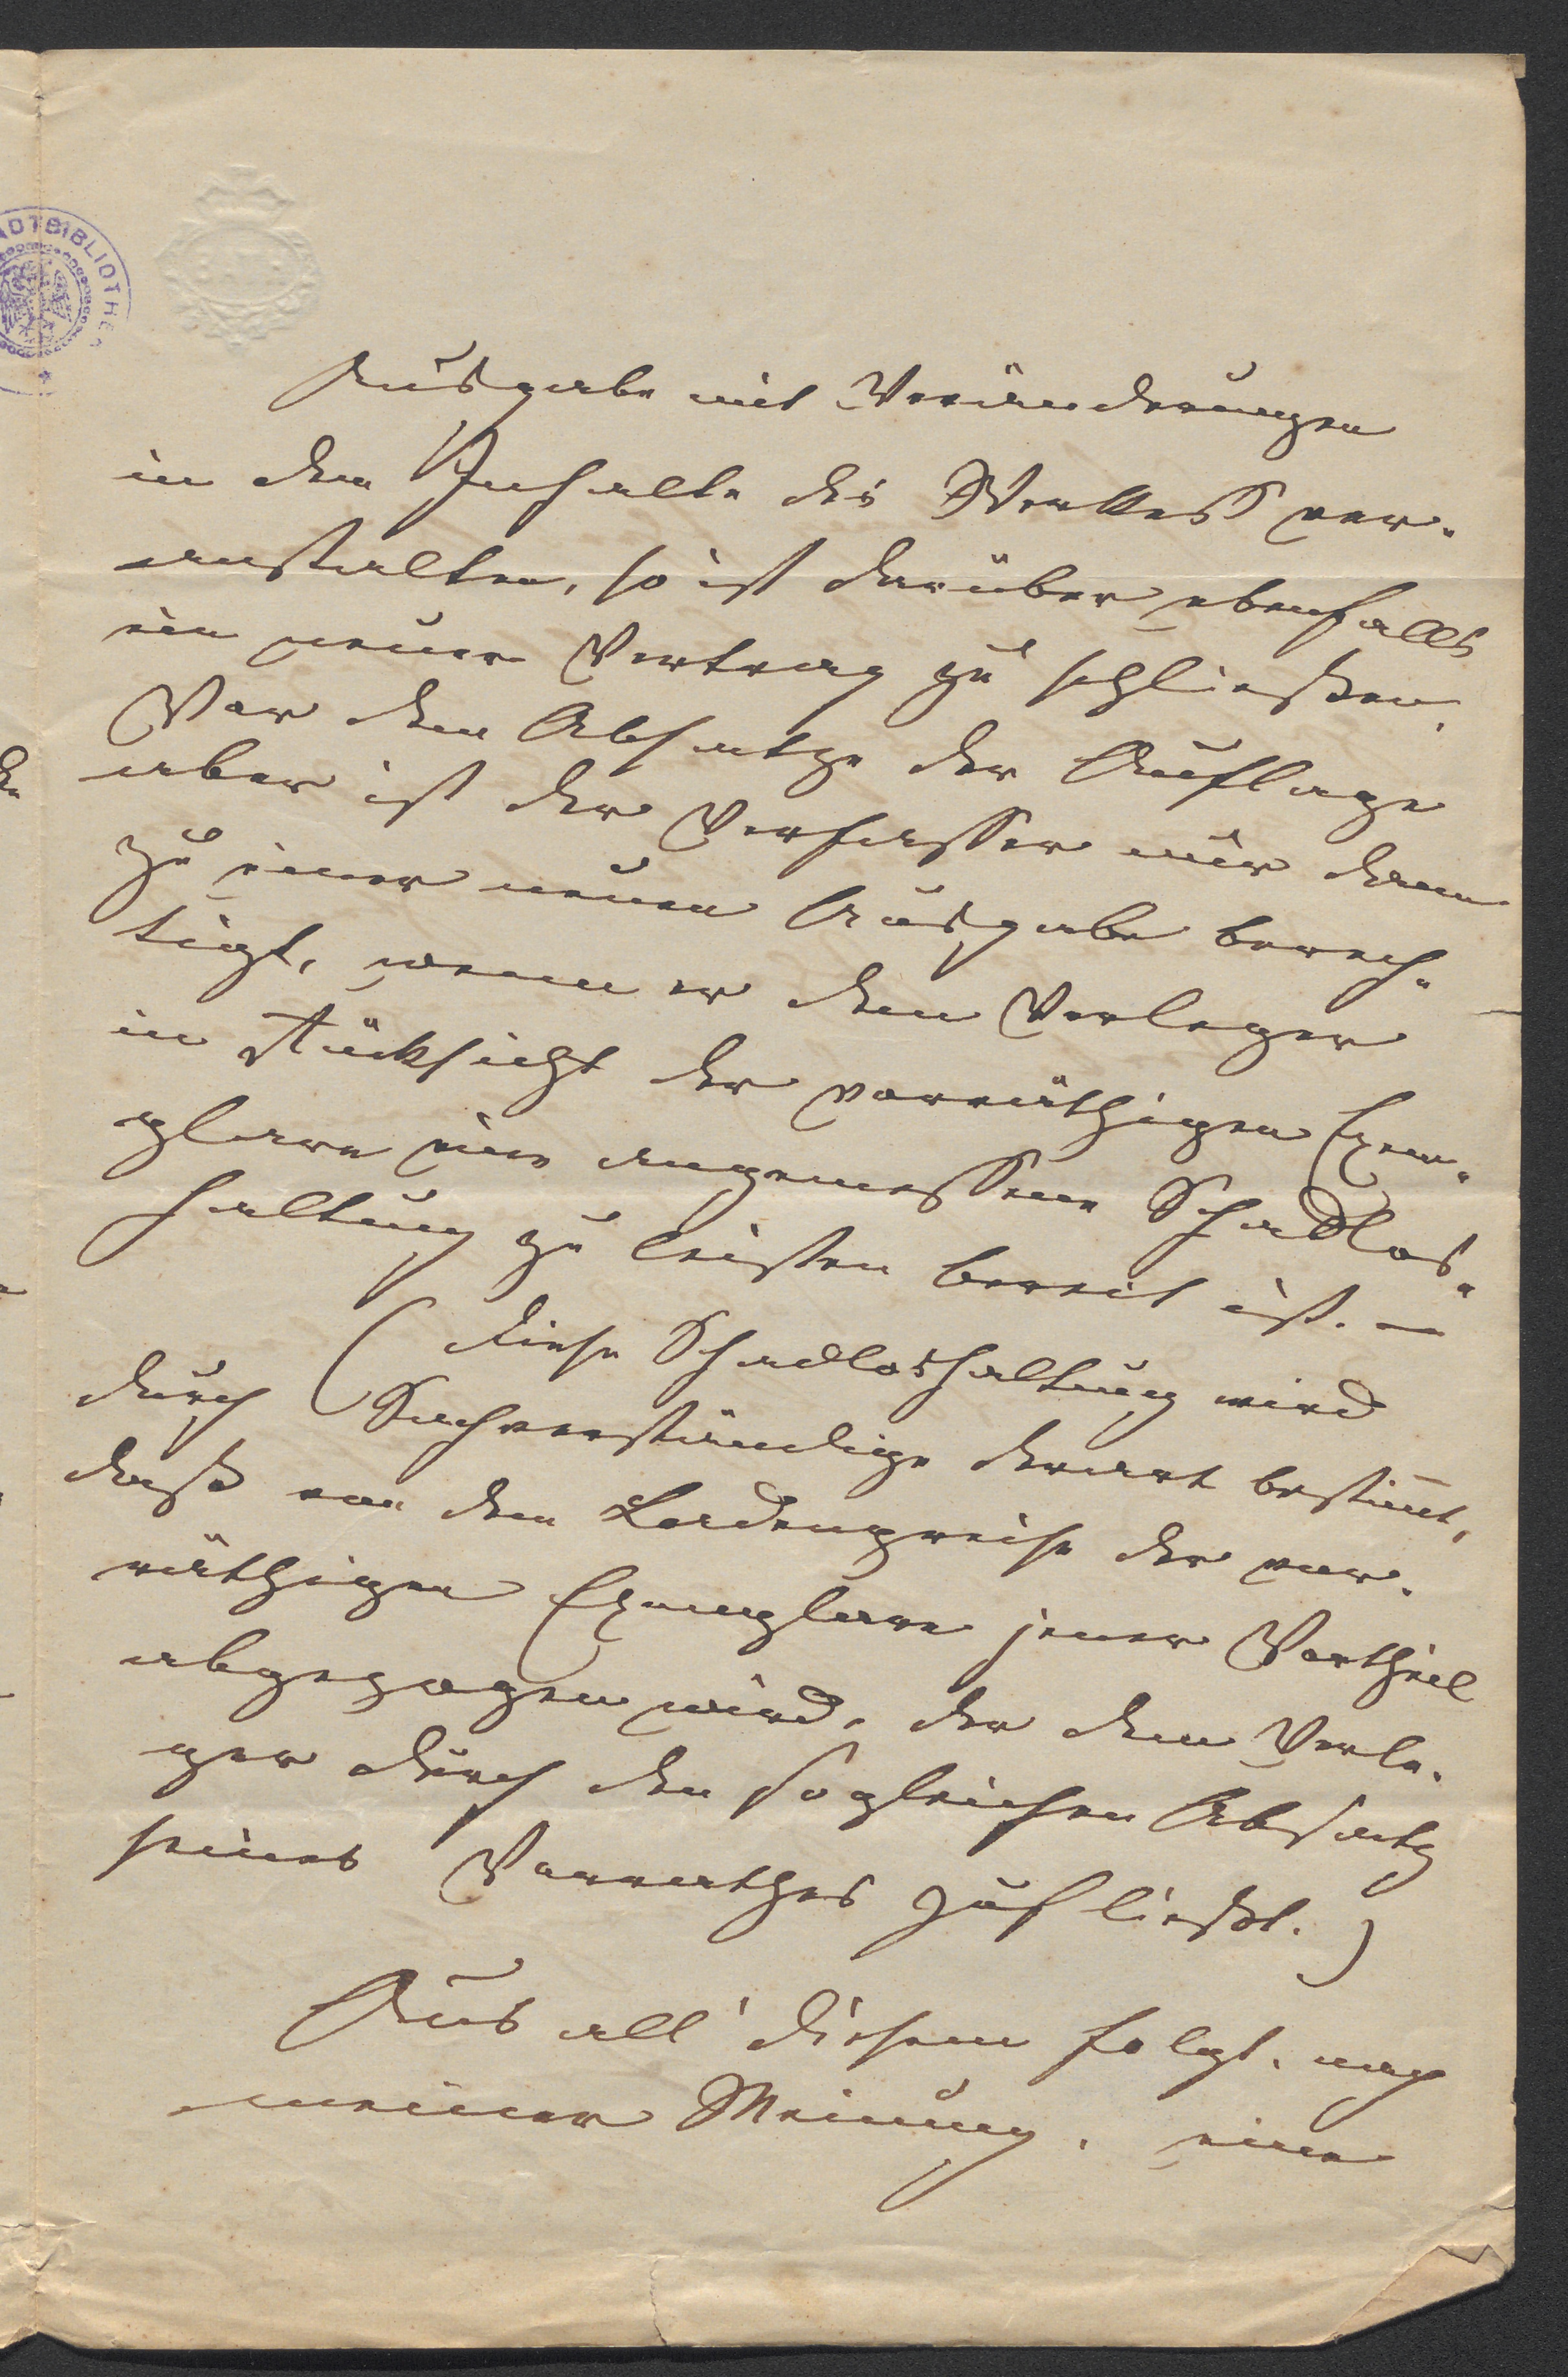 ADTBIBLIOTHEK
Ausgabe mit Veränderungen
in dem Inhalte des Werkes ver-
anstalten, so ist darüber ebenfalls
ein neuer Vertrag zu schließen.
Vor dem Absatze der Auflage
aber ist der Verfasser nur dann
zu einer neuen Ausgabe berech-
tigt, wenn er dem Verleger
in Rücksicht der vorräthigen Exem-
plare eine angemessene Schadlos-
haltung zu leisten bereit ist. –
(Diese Schadloshaltung wird
durch Sachverständige derart bestim̅t,
daß von dem Ladenpreise der vor-
räthigen Exemplare jener Vortheil
abgezogen wird, der dem Verle-
ger durch den sogleichen Absatz
seines Vorrathes zufließt.)
Aus all' diesem folgt, nach
meiner Meinung, eine